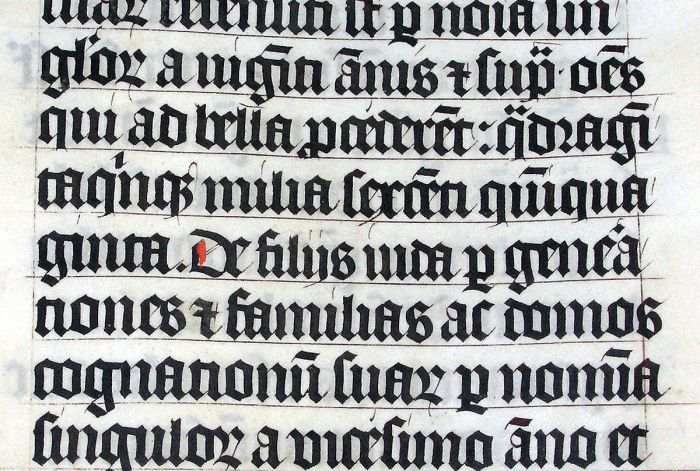 suaꝝ recensiti sūt ꝑ noīa sin
gl'oꝝ a uigīti ānis ⁊ sup̄ oēs
qui ad bella ꝓcederēt: q̈dragī
taq̇nqꝫ milia sexcēti quīqua
ginta. De filijs iuda ꝑ gen̄ca
tiones ⁊ familias ac domos
cognationū suaꝝ ꝑ nomīa
singuloꝝ a vicesimo āno et